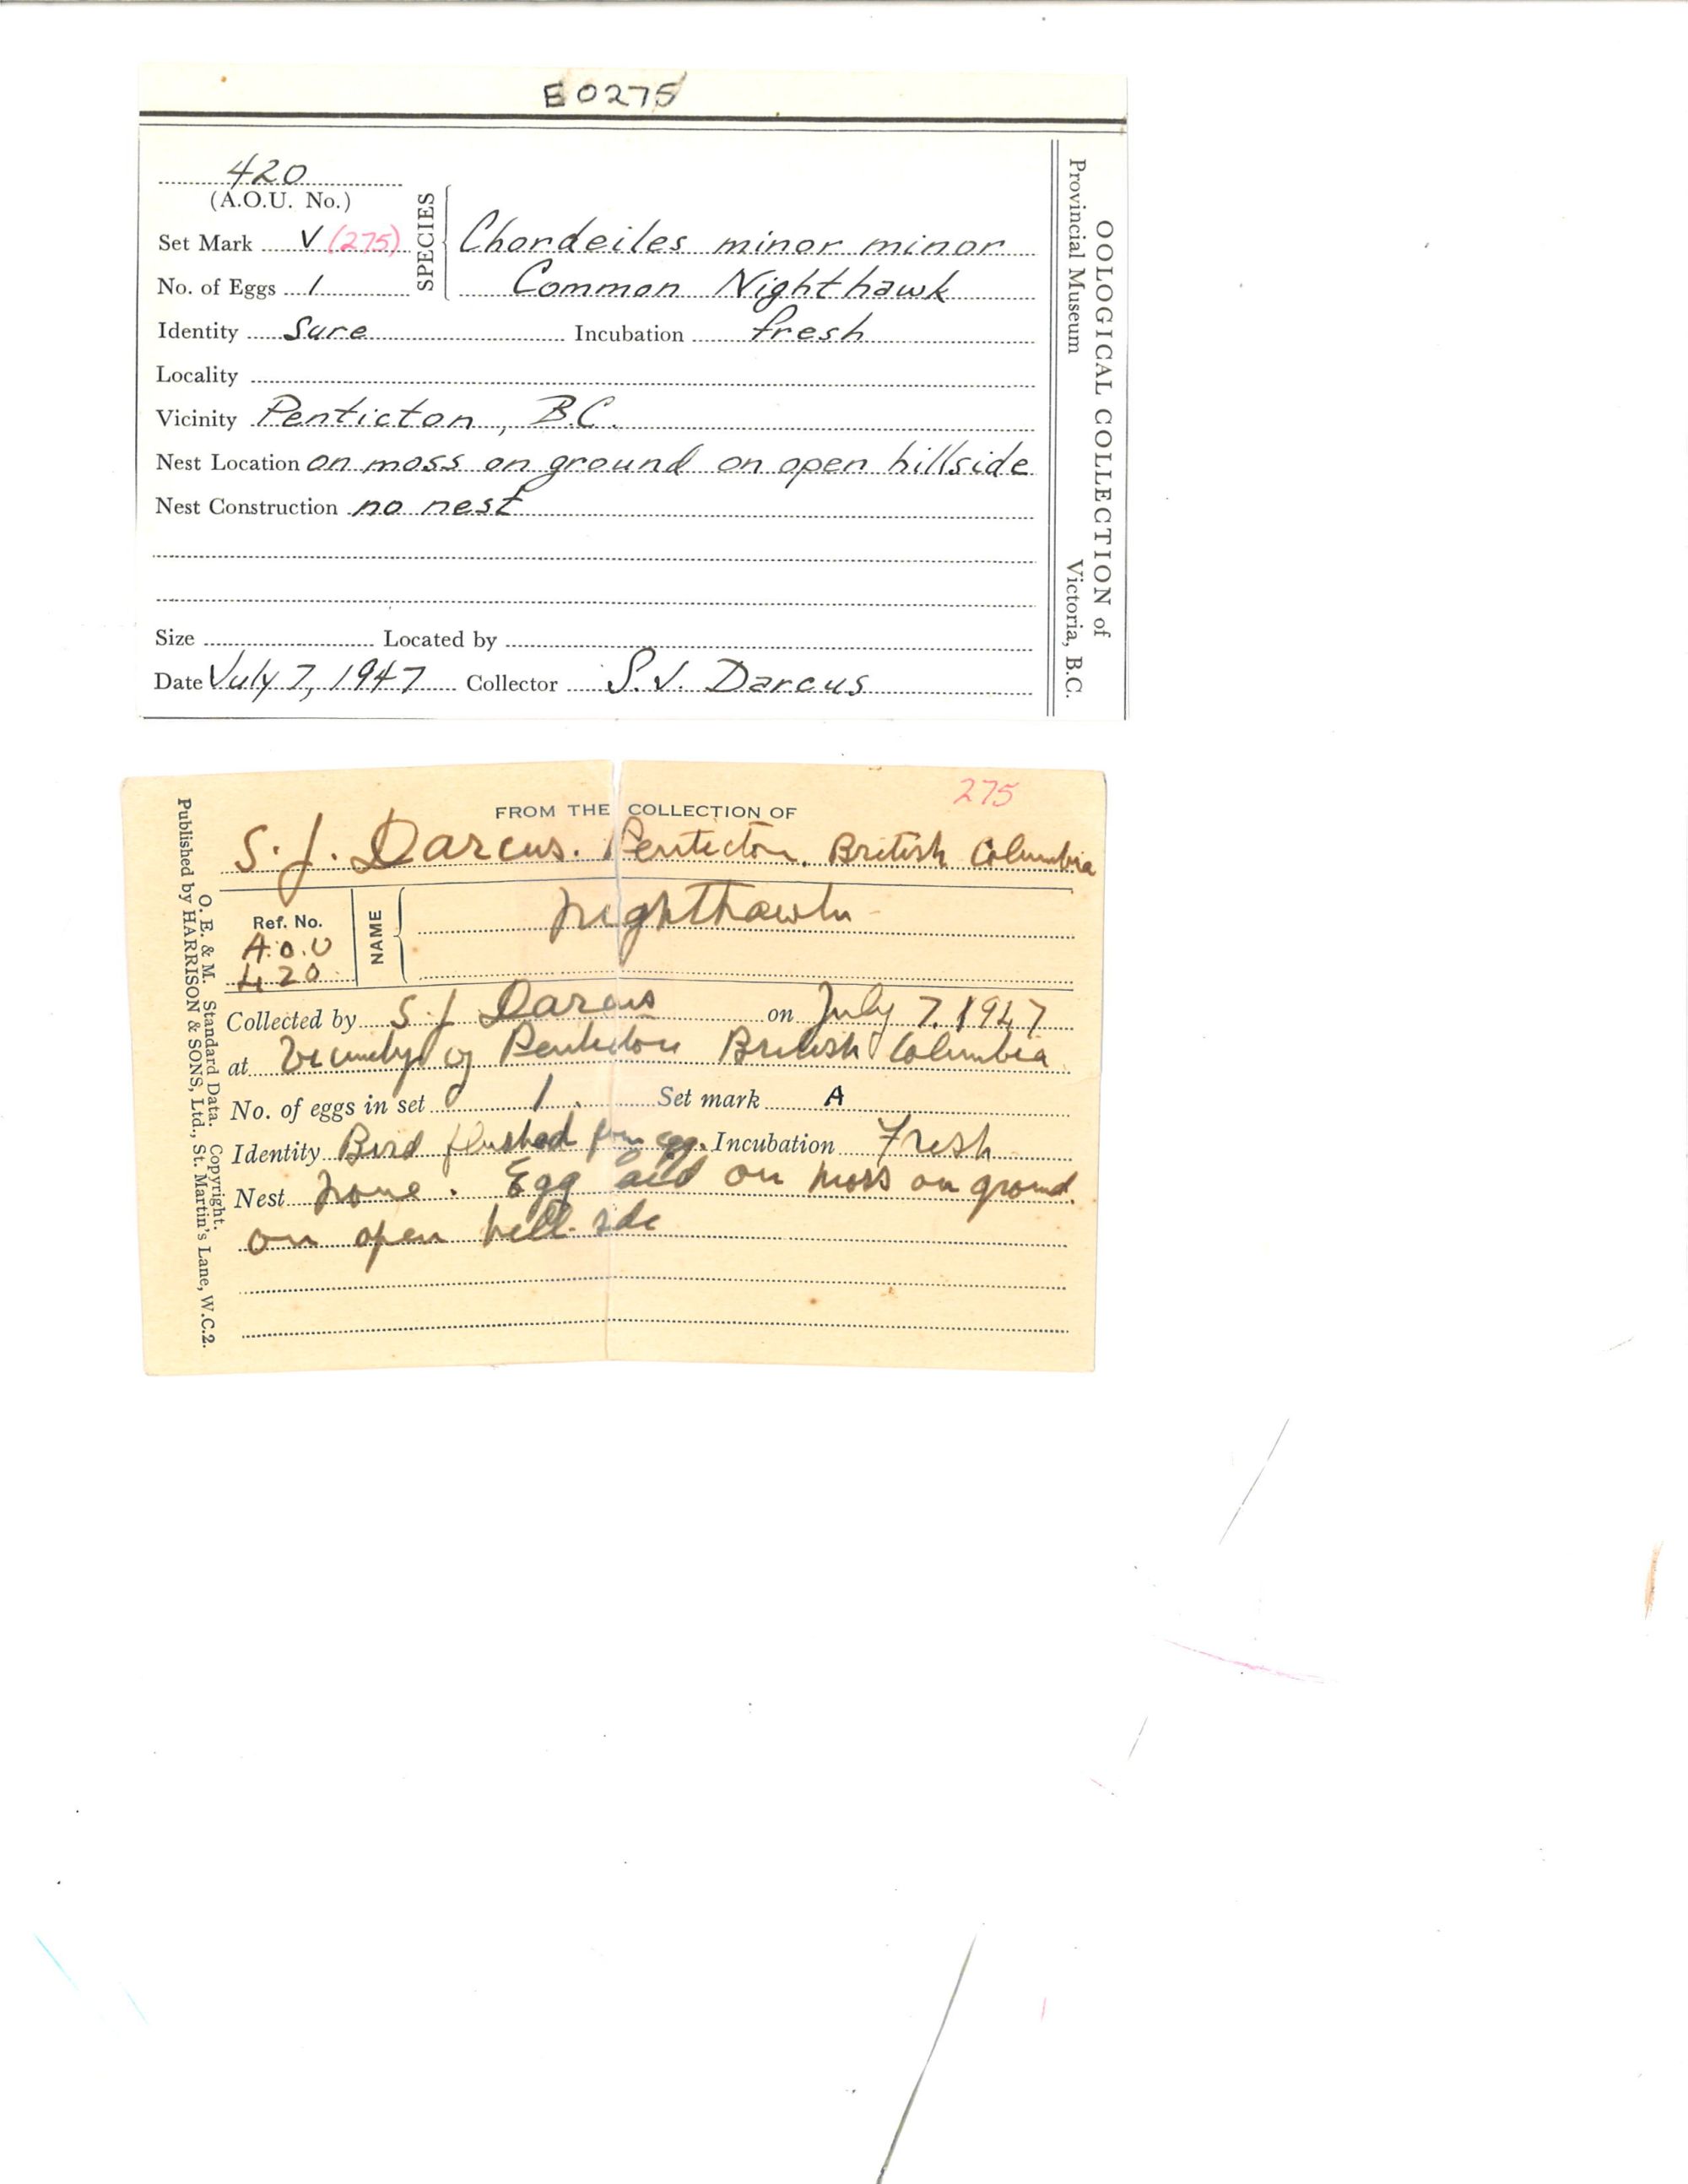 E0275
420
(A.O.U. No.)
Set Mark V (275)
No. of Eggs 1
SPECIES
Chordeiles minor minor
Common Nighthawk
Identity Sure Incubation fresh
Locality
Vicinity Penticton, B.C.
Nest Location on moss on ground on open hillside
Nest Construction no nest
Size Located by
Date July 7, 1947 Collector S.J. Darcus
OOLOGICAL COLLECTION of
Provincial Museum Victoria, B.C.
275
FROM THE COLLECTION OF
S.J. Darcus. Penticton. British Columbia
Ref. No.
A.O.U
420
NAME
Nighthawk
Collected by S J Darcus on July 7. 1947
at Vicinity of Penticton British Columbia
No. of eggs in set 1. Set mark A
Identity Bird flushed from egg. Incubation Fresh
Nest None. Egg laid on moss on ground.
on open hill side
O. E. & M. Standard Data. Copyright.
Published by HARRISON & SONS, Ltd., St. Martin's Lane, W.C.2.